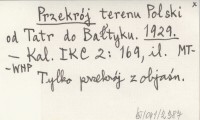 x
Przekrój terenu Polski
od Tatr do Bałtyku. 1929.
– Kal. IKC 2: 169, il. MT-
–WHP
Tylko przekrój z objaśn.